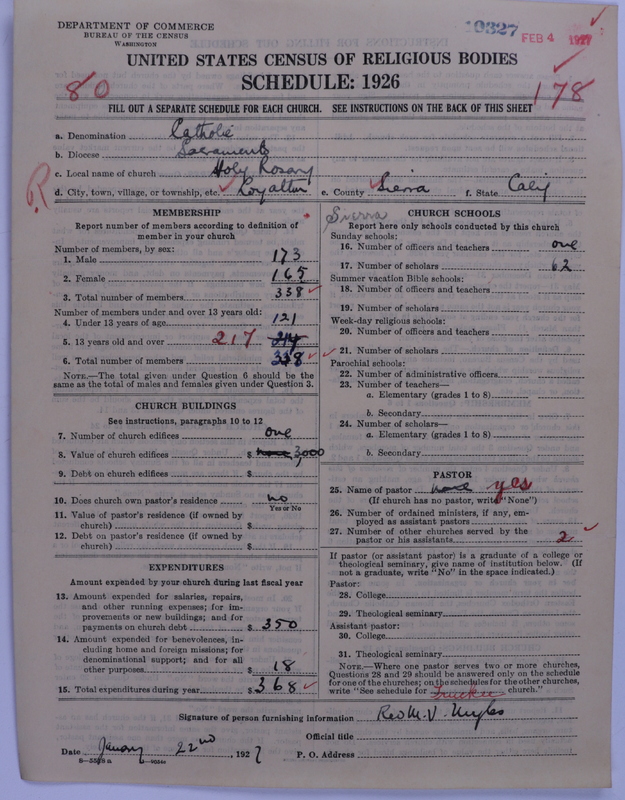 DEPARTMENT OF COMMERCE
BUREAU OF THE CENSUS
WASHINGTON
19327 FEB 4 1927
UNITED STATES CENSUS OF RELIGIOUS BODIES
SCHEDULE: 1926
80
178
FILL OUT A SEPARATE SCHEDULE FOR EACH CHURCH. SEE INSTRUCTIONS ON THE BACK OF THIS SHEET
a. Denomination Catholic
b. Diocese Sacramento
c. Local name of church Holy Rosary
R
d. City, town, village, or township, etc. Loyalton e. County Sierra f. State Calif
Sierra
MEMBERSHIP
Report number of members according to definition of
member in your church
Number of members, by sex:
1. Male 173
2. Female 165
3. Total number of members 338
Number of members under and over 13 years old:
4. Under 13 years of age 121
5. 13 years old and over 217 214
6. Total number of members 338
NOTE.—The total given under Question 6 should be the
same as the total of males and females given under Question 3.
CHURCH BUILDINGS
See instructions, paragraphs 10 to 12
7. Number of church edifices one
8. Value of church edifices $ none 3,000
9. Debt on church edifices $
10. Does church own pastor's residence no
Yes or No
11. Value of pastor's residence (if owned by
church) $
12. Debt on pastor's residence (if owned by
church) $
EXPENDITURES
Amount expended by your church during last fiscal year
13. Amount expended for salaries, repairs,
and other running expenses; for im-
provements or new buildings; and for
payments on church debt $ 350
14. Amount expended for benevolences, in-
cluding home and foreign missions; for
denominational support; and for all
other purposes $ 18
15. Total expenditures during year $ 368
CHURCH SCHOOLS
Report here only schools conducted by this church
Sunday schools:
16. Number of officers and teachers one
17. Number of scholars 62
Summer vacation Bible schools:
18. Number of officers and teachers
19. Number of scholars
Week-day religious schools:
20. Number of officers and teachers
21. Number of scholars
Parochial schools:
22. Number of administrative officers
23. Number of teachers—
a. Elementary (grades 1 to 8)
b. Secondary
24. Number of scholars—
a. Elementary (grades 1 to 8)
b. Secondary
PASTOR
25. Name of pastor none yes
(If church has no pastor, write "None")
26. Number of ordained ministers, if any, em-
ployed as assistant pastors
27. Number of other churches served by the
pastor or his assistants 2
If pastor (or assistant pastor) is a graduate of a college or
theological seminary, give name of institution below. (If
not a graduate, write "No" in the space indicated.)
Pastor:
28. College
29. Theological seminary
Assistant pastor:
30. College
31. Theological seminary
NOTE.—Where one pastor serves two or more churches,
Questions 28 and 29 should be answered only on the schedule
for one of the churches; on the schedules for the other churches,
write "See schedule for Truckee church."
Signature of person furnishing information Rev M. V.
Official title
Date January 22nd, 1927 P. O. Address